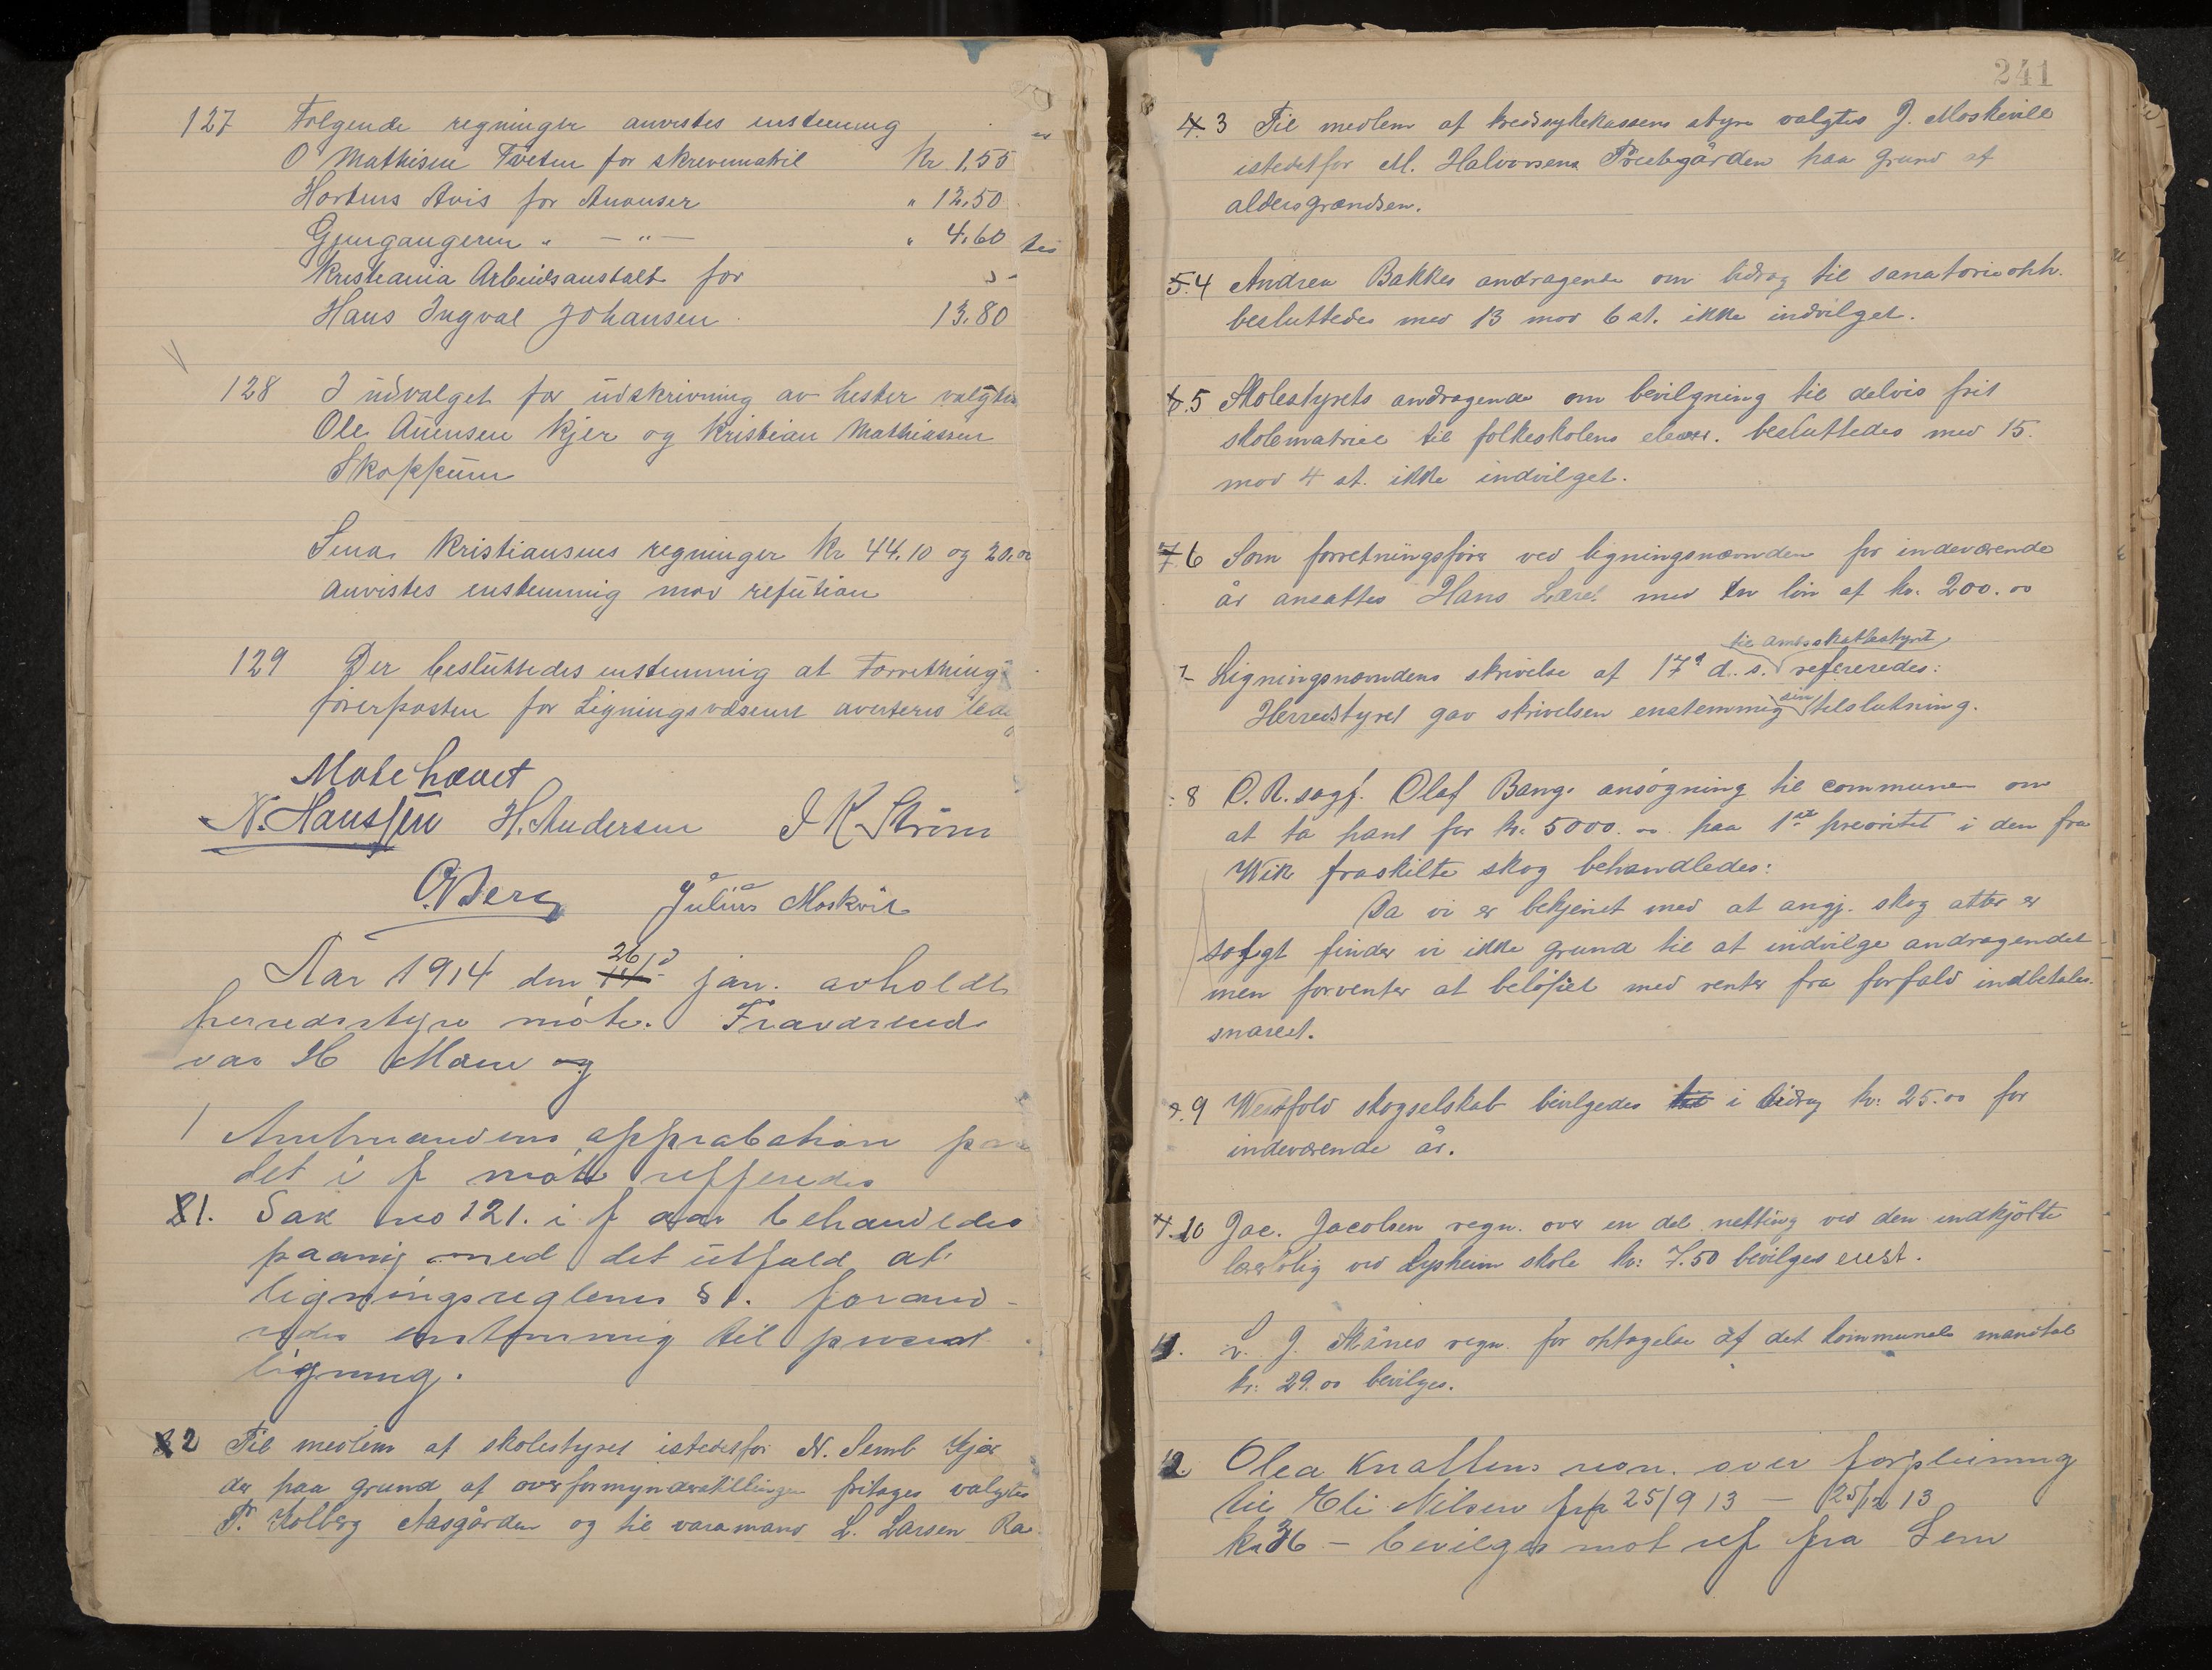 127 Følgende regninger anvistes enstemmig
O Mathisen Tveten for skrivematril Kr. 1,55
Hortens Avis for Anonser " 12,50
Gjengangeren " — " — " 4,60
Kristiania Arbeidsanstalt for
Hans Ingval Johansen 13,80
128 I udvalget for udskrivning av hester valgtes
Ole Auensen Kjær og Kristian Mathiassen
Skoppum
Sena Kristiansens regninger Kr 44,10 og 20,00
anvistes enstemmig mod refution
129 Der besluttedes enstemmig at Forretning
förerposten for Ligningsvæsenet averteres ledig
Möte hævet
N. Hanssen H. Andersen I K Ström
O. Berg Julius Moskvil
Aar 1914 den 26 jan. avholdt
herredsstyre möte. Fraværende
var H Møen og
1 Amtmandens approbation paa
det i f möte refferedes
1. Sak no 121. i f aar behandledes
paany med det utfald at
ligningsreglenes § 1. forand-
redes enstemmig til procent
ligning.
2 Til medlem af skolestyret istedetfor N. Semb Kjær
der paa grund af overformynderstillingen fritages valgtes
P. Kolberg Aasgården og til varamand L. Larsen Ra
241
4. 3 Til medlem af kredssykekassens styre valgtes J. Moskvill
istedetfor M. Halvorsena Prestegården paa grund af
aldersgrændsen.
5. 4 Andrea Bakkes andragende om bidrag til sanatorieoph.
besluttedes med 13 mod 6 st. ikke indvilget.
6. 5 Skolestyrets andragende om bevilgning til delvis frit
skolematriel til folkeskolens elever. besluttedes med 15.
mod 4 st. ikke indvilget.
7 6 Som forretningsförer ved ligningsnævnden for indeværende
år ansattes Hans med en lön af kr. 200.00
til amtsskattestyret
7 Ligningsnævndens skrivelse af 17d d. s. refereredes:
sin
Herredstyret gav skrivelsen enstemmig tilslutning.
8 O.R.sagf. Olaf Bangs ansögning til communen om
at ta pant for kr. 5000.00 paa 1ste preoritet i den fra
Wik fraskilte skog behandledes:
Da vi er bekjent med at angj. skog atter er
solgt finder vi ikke grund til at indvilge andragendet
men forventer at belöpet med renter fra forfald indbetales
snarest.
9 Westfold skogselskab bevilgedes i bidrag kr. 25.00 for
indeværende år.
10 Jac. Jacobsen regn. over en del netting ved den indkjöbte
lærerbolig ved Lysheim skole kr: 7.50 bevilges enst.
11. L. J. Skånes regn. for optagelse af det kommunale mandtal
kr: 29.00 bevilges.
12. Olea Knattens regn. over forpleining
til Eli Nilsen fra 25/9 13 — 25/12 13
kr 36 — bevilges mot ref fra Sem